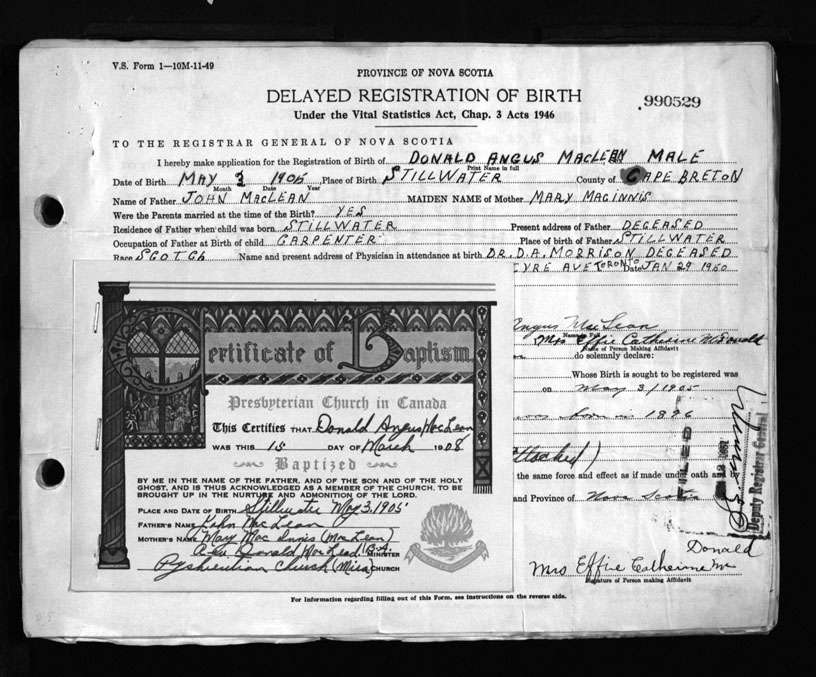 V.S. Form 1—10M-11-49
PROVINCE OF NOVA SCOTIA
DELAYED REGISTRATION OF BIRTH
990529
Under the Vital Statistics Act, Chap. 3 Acts 1946
TO THE REGISTRAR GENERAL OF NOVA SCOTIA
I hereby make application for the Registration of Birth of DONALD ANGUS MACLEAN MALE
Print Name in full
Date of Birth MAY 3 1905, Place of Birth STILLWATER County of CAPE BRETON
Month Date Year
Name of Father JOHN MACLEAN MAIDEN NAME of Mother MARY MACINNIS
Were the Parents married at the time of the Birth? YES
Residence of Father when child was born STILLWATER Present address of Father DECEASED
Occupation of Father at Birth of child CARPENTER Place of birth of Father STILLWATER
Race SCOTCH Name and present address of Physician in attendance at birth DR. D.A. MORRISON DECEASED
EYRE AVE TORONTO Date JAN 29 1950
Angus MacLean
Mrs Effie Catherine McDonald
Name of Person Making Affidavit
do solemnly declare:
Whose Birth is sought to be registered was
on May 3/1905
was born in 1896
attached)
the same force and effect as if made under oath an
and Province of Nova Scotia
Deputy Registrar General
Donald
Mrs Effie Catherine Mc
Signature of Person making Affidavit
Certificate of Baptism
Presbyterian Church in Canada
This Certifies THAT Donald Angus MacLean
WAS THIS 15 DAY OF March 1908
Baptized
BY ME IN THE NAME OF THE FATHER, AND OF THE SON AND OF THE HOLY
GHOST, AND IS THUS ACKNOWLEDGED AS A MEMBER OF THE CHURCH, TO BE
BROUGHT UP IN THE NURTURE AND ADMONITION OF THE LORD.
PLACE AND DATE OF BIRTH Stillwater May 3, 1905
FATHER'S NAME John MacLean
MOTHER'S NAME Mary Mac Innis (MacLean)
Donald MacLead (B.A.) MINISTER
Church (Mira) CHURCH
For Information regarding filling out of this Form, see instructions on the reverse side.